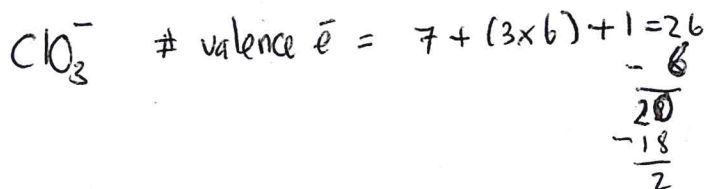 ClO₃⁻ # valence ē = 7 + (3×6) + 1 = 26
- 6
20
-18
2